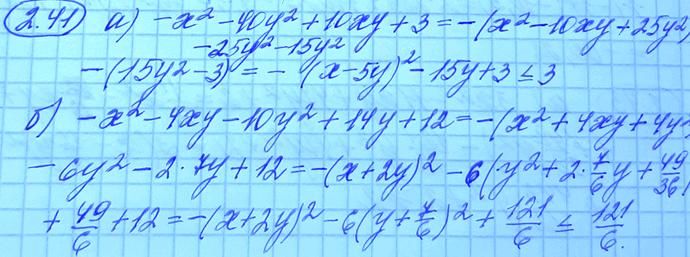 2.41 а) -x² - 40y² + 10xy + 3 = -(x² - 10xy + 25y²)
-25y² - 15y²
-(15y² - 3) = -(x - 5y)² - 15y + 3 ≤ 3
б) -x² - 4xy - 10y² + 14y + 12 = -(x² + 4xy + 4y²
- 6y² - 2·7y + 12 = -(x + 2y)² - 6(y² + 2·7/6 y + 49/36)
+ 49/6 + 12 = -(x + 2y)² - 6(y + 7/6)² + 121/6 ≤ 121/6.